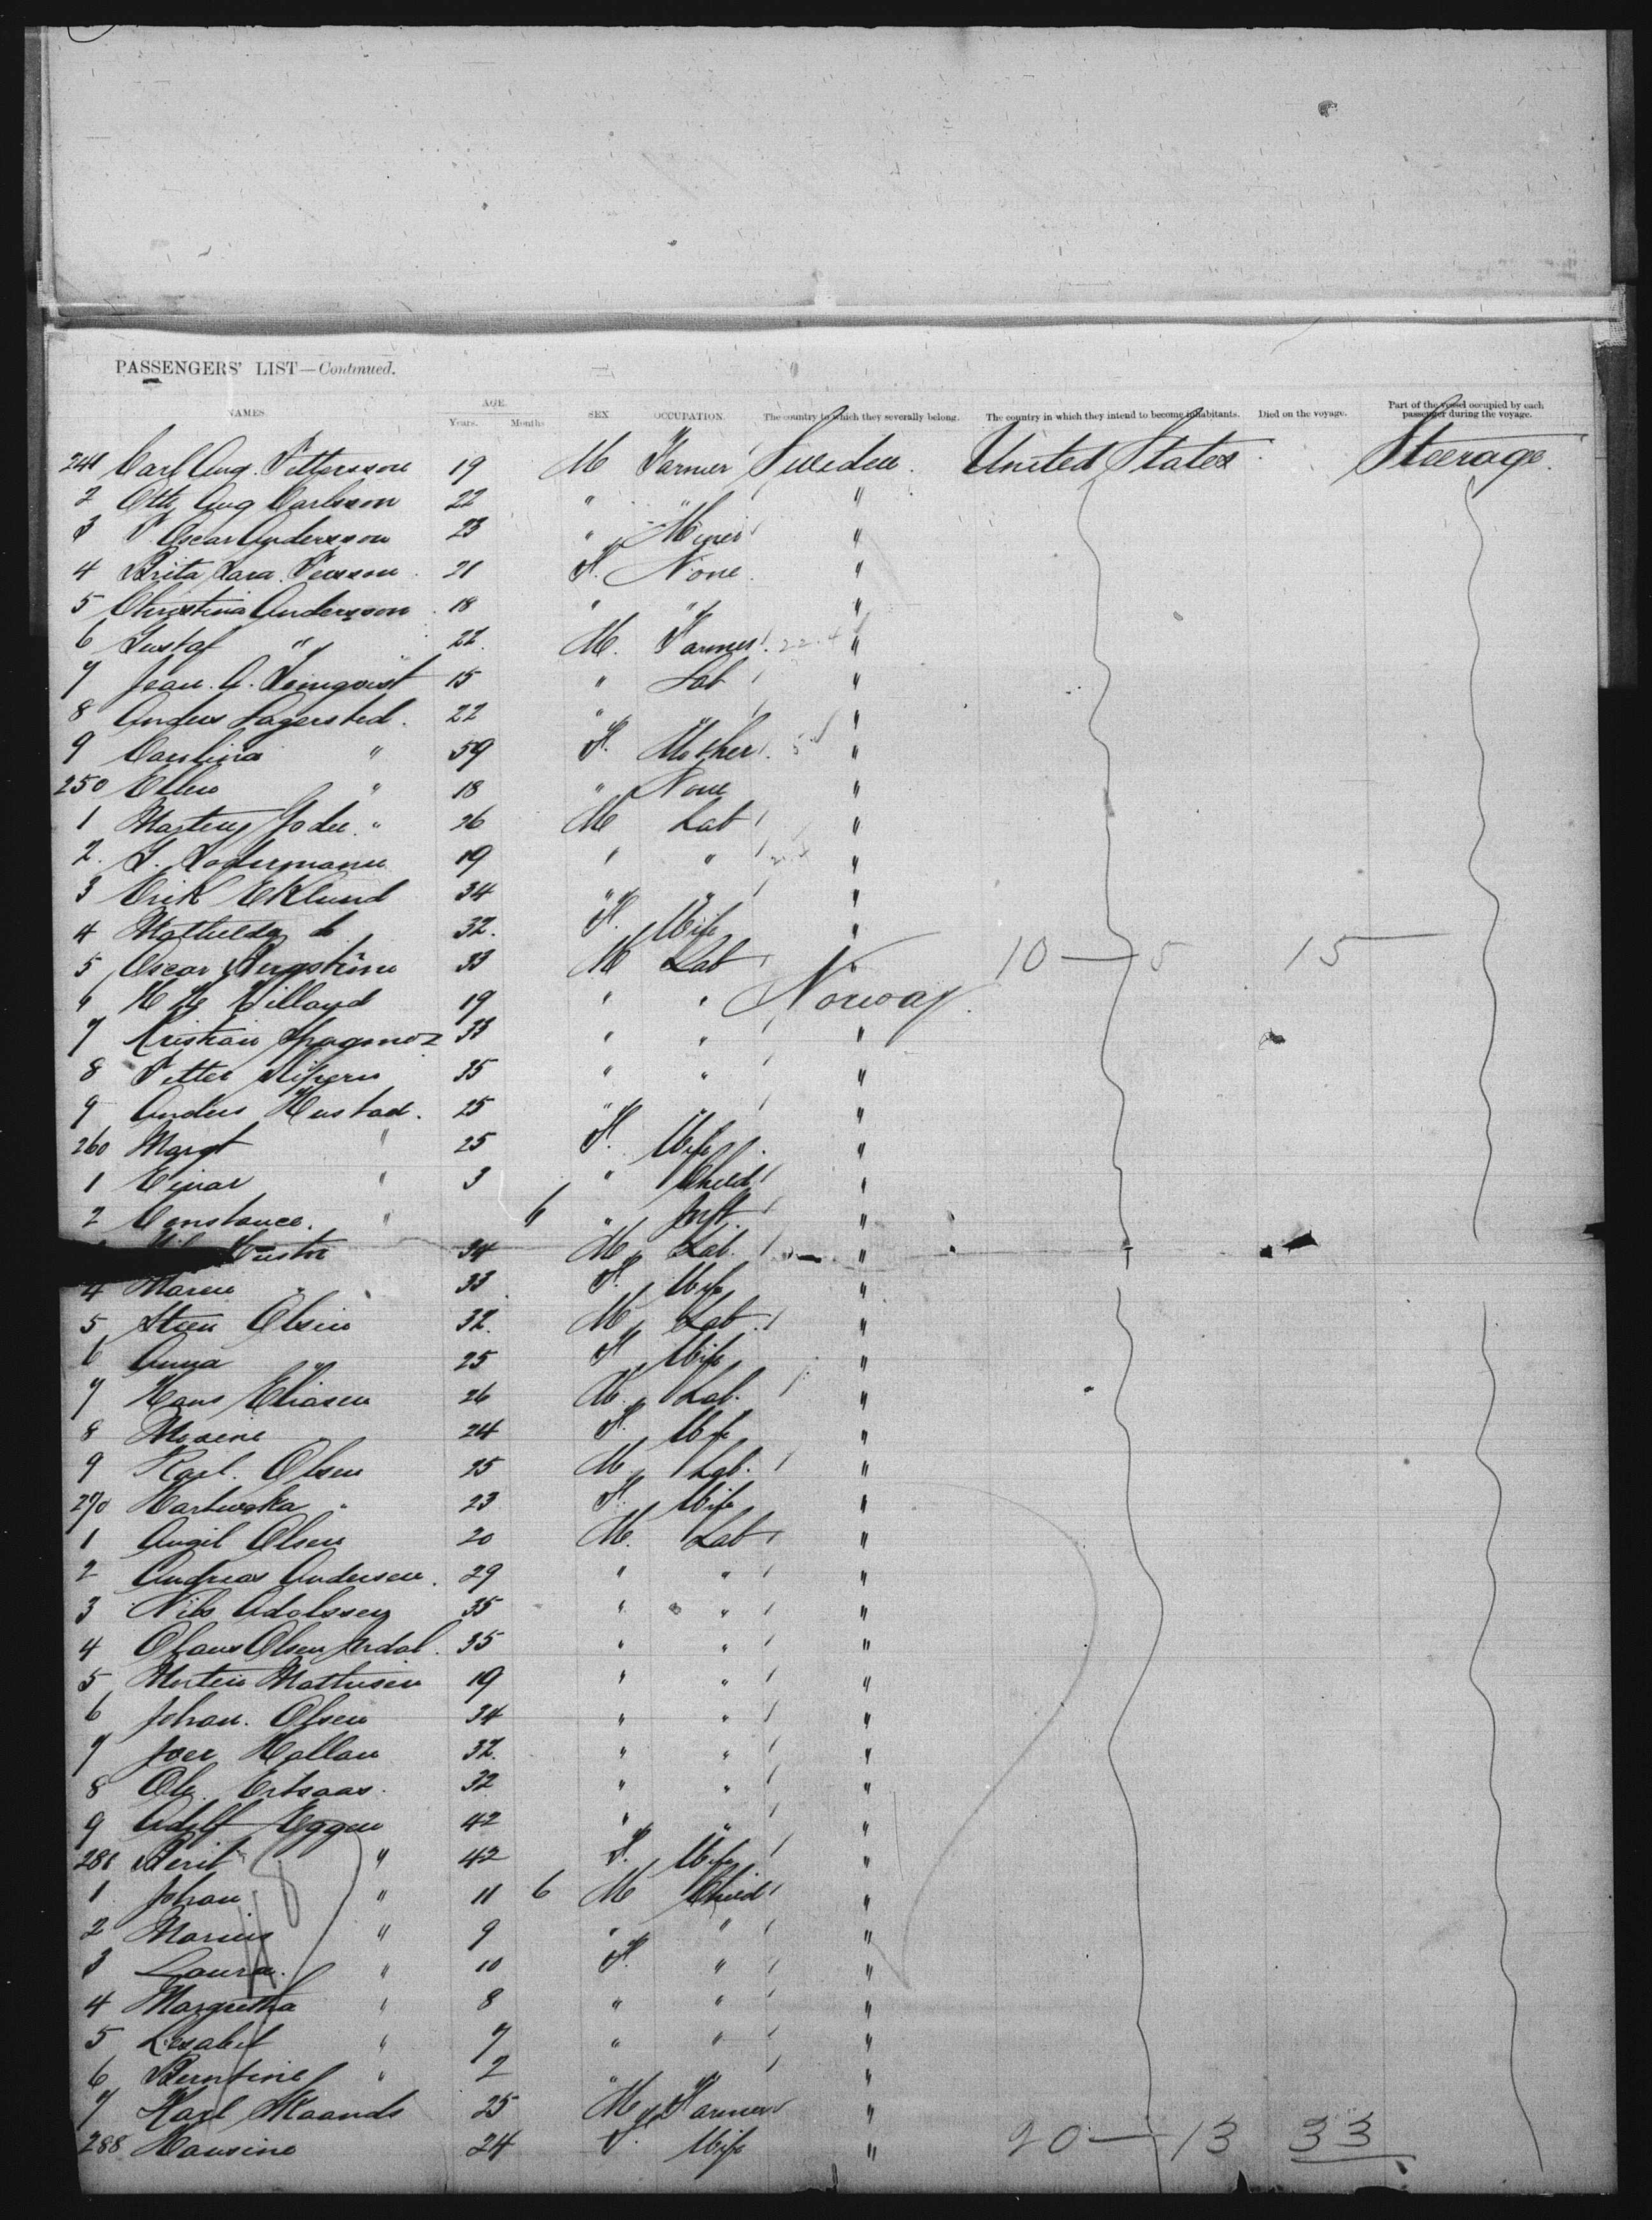 PASSENGERS' LIST—Continued.
NAMES. AGE. Years. Months SEX OCCUPATION. The country to which they severally belong. The country in which they intend to become inhabitants. Died on the voyage. Part of the vessel occupied by each passenger during the voyage.
241 Carl Aug. Pettersson 19 M Farmer Sweden. United States Steerage.
2 Otto Aug Carlsson 22 " " "
3 P Oscar Andersson 23 " Miner "
4 Brita Sara Persson 21 F. None "
5 Christina Andersson 18 " " "
6 Gustaf " 22. M. Farmer "
7 Jean. A. 15 " Lab "
8 Anders Lagersted. 22 " " "
9 Carolina " 59 F. Mother "
250 Ellen " 18 " None "
1 " 26 M Lab "
2. S. Sodermann 19 " " "
3 Erik Eklund 34 " " "
4 do 32. F. Wife "
5 Oscar 33 M Lab " 10 — 5 15
6 19 " " Norway.
7 Kristian 33 " " "
8 Petter 35 " " "
9 Anders Hustad. 25 " " "
260 Margt " 25 F. Wife "
1 Einar " 3 " Child "
2 Constance. " 6 " Inft. "
34 M Lab. "
4 Maren " 33 F. Wife "
5 Steen Olsen 32. M Lab "
6 Anna " 25 F Wife "
7 Hans Eliasen 26 M. Lab. "
8 " 24 F. Wife "
9 Karl. Olsen 25 M Lab. "
270 " 23 F. Wife "
1 Olsen 20 M. Lab "
2 Andreas Andersen. 29 " " "
3 Nils Adolssen 35 " " "
4 Olaus Olsen 35 " " "
5 Morten Mathisen 19 " " "
6 Johan. Olsen 34 " " "
7 Hallan 32. " " "
8 Ole. 32 " " "
9 Adolf Eggen 42 " " "
280 Berit " 42 F. Wife "
1 Johan " 11 6 M Child "
2 Marius " 9 " " "
3 Laura. " 10 F. " "
4 Margretha " 8 " " "
5 " 7 " " "
6 Berntine " 2 " " "
7 Karl 25 M Farmer "
288 Hansine 24 F. Wife " 20 — 13 33